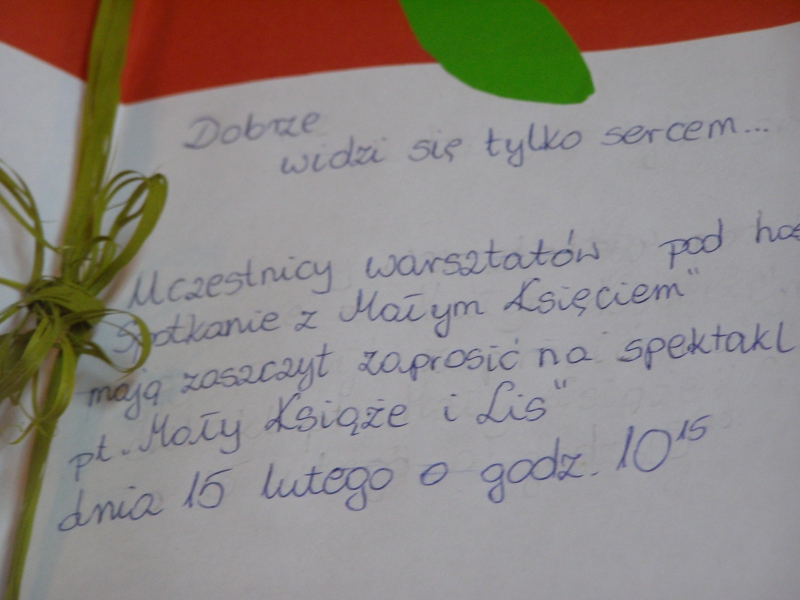 Dobrze
widzi się tylko sercem...
Uczestnicy warsztatów pod
Spotkanie z Małym Księciem"
mają zaszczyt zaprosić na spektakl
pt. „Mały Książe i Lis"
dnia 15 lutego o godz. 10¹⁵